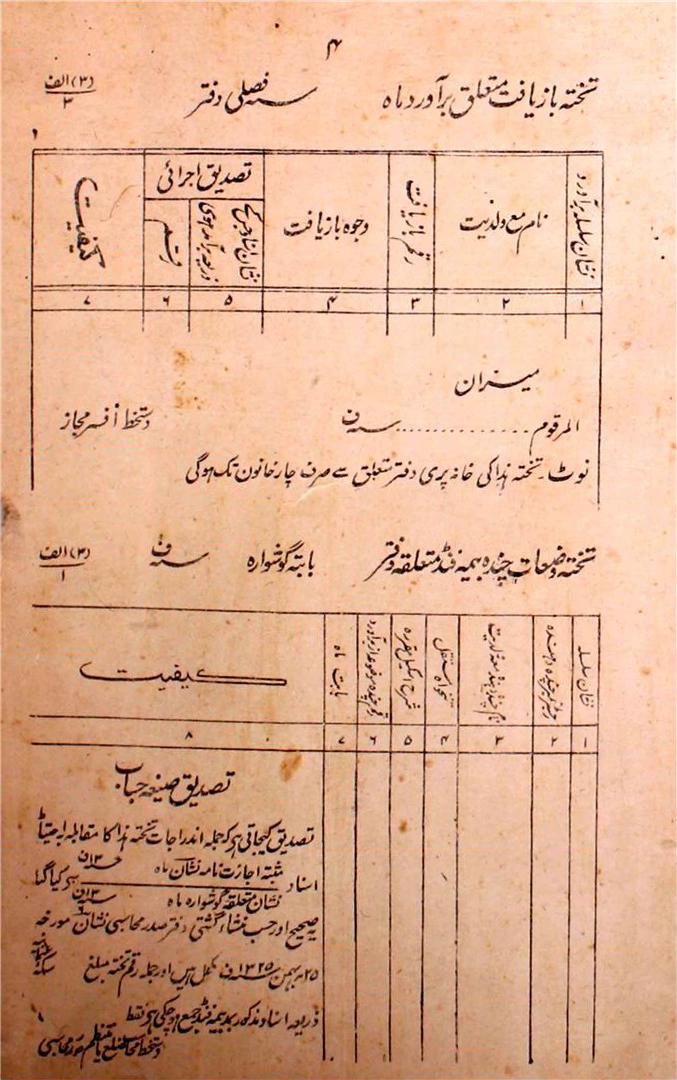 ۴
تختہ بازیافت متعلق برآورد ماہ سنہ فصلی دفتر (۳) الف ۳
نشان سلسلہ برآورد
نام مع ولدیت
رقم بازیافت
وجوہ بازیافت
تصدیق اجرائی
نشان اسناد جنکے ذریعہ برآمد ہوی
رقم
کیفیت
۱ ۲ ۳ ۴ ۵ ۶ ۷
میزان
المرقوم .............. سنہ ف دستخط افسر مجاز
نوٹ۔ تختہ ہذا کی خانہ پری دفتر متعلق سے صرف چار خانون تک ہوگی
تختہ وضعات چندہ بیمہ فنڈ متعلقہ دفتر بابتہ گوشوارہ سنہ ف (۳) الف ۱
نشان سلسلہ
نمبر چندہ دہندہ
نام چندہ دہندہ معہ ولدیت
تنخواہ مستقل
شرح اسکیل مقررہ
رقم چندہ موضوعہ از برآورد
بابت ماہ
کیفیت
۱ ۲ ۳ ۴ ۵ ۶ ۷ ۸
تصدیق صیغہ حساب
تصدیق کیجاتی ہے کہ جملہ اندراجات تختہ ہذا کا مقابلہ احتیاطاً
اسناد مثبتہ اجازت نامہ نشان ماہ سنہ ۱۳ ف
نشان متعلقہ گوشوارہ ماہ سنہ ۱۳ ف سے کیا گیا
یہ صحیح اور حسب منشاء گشتی دفتر صدر محاسبی نشان مورخہ
۲۵ بہمن سنہ ۱۳۲۵ ف مکمل ہیں اور جملہ رقم تختہ مبلغ
ذریعہ اسناد مذکور بمد بیمہ فنڈ جمع ہوچکی ہے فقط
دستخط محاسب ضلع یا منتظم صدر محاسبی